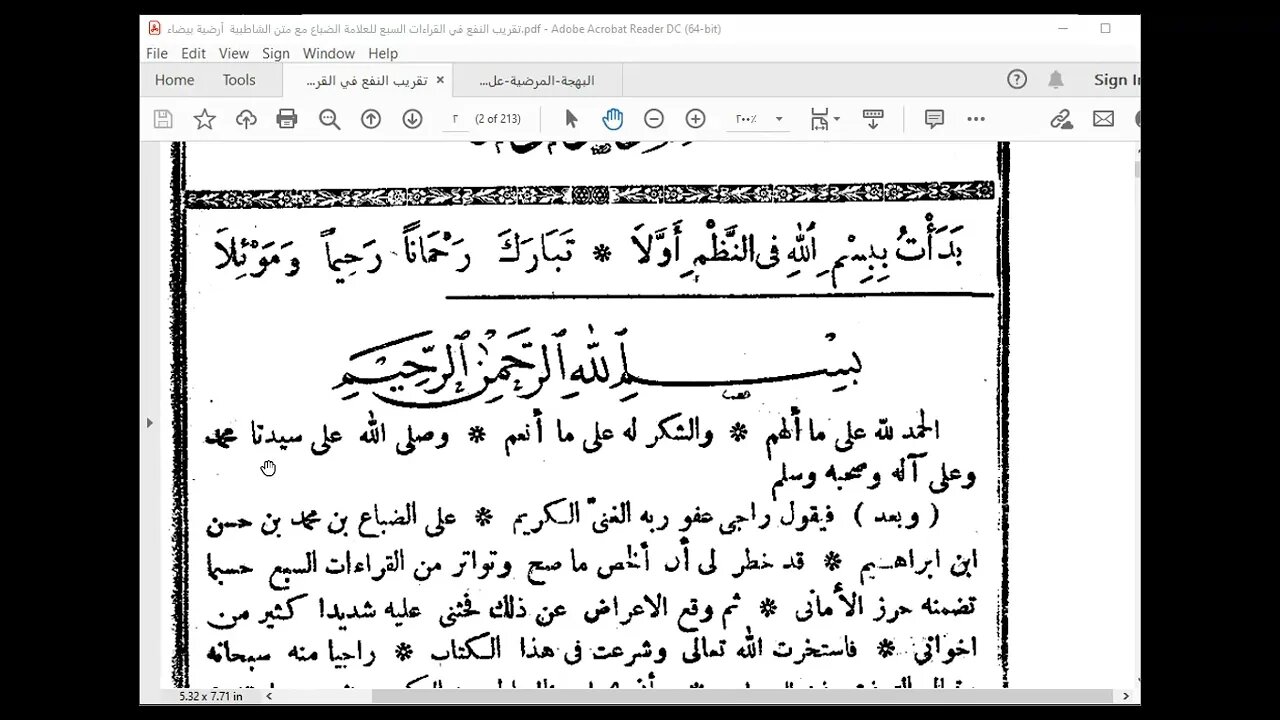 تقريب النفع في القراءات السبع للعلامة الضباع مع متن الشاطبية أرضية بيضاء.pdf - Adobe Acrobat Reader DC (64-bit)
File Edit View Sign Window Help
Home Tools تقريب النفع في القر... × البهجة-المرضية-عل... Sign In
٢ (2 of 213) ٢٠٠٪
بَدَأْتُ بِبِسْمِ اللهِ فى النَّظْمِ أَوَّلَا * تَبَارَكَ رَحْمَانًا رَحِيمًا وَمَوْئِلَا
بِسْمِ اللهِ الرَّحْمَنِ الرَّحِيمِ
الحمد لله على ما ألهم * والشكر له على ما أنعم * وصلى الله على سيدنا محمد
وعلى آله وصحبه وسلم
( وبعد ) فيقول راجى عفو ربه الغنىّ الكريم * على الضباع بن محمد بن حسن
ابن ابراهيم * قد خطر لى أن ألخص ما صح وتواتر من القراءات السبع حسبما
تضمنه حرز الأمانى * ثم وقع الاعراض عن ذلك فحثنى عليه شديدا كثير من
اخوانى * فاستخرت الله تعالى وشرعت فى هذا الكتاب * راجيا منه سبحانه
5.32 x 7.71 in